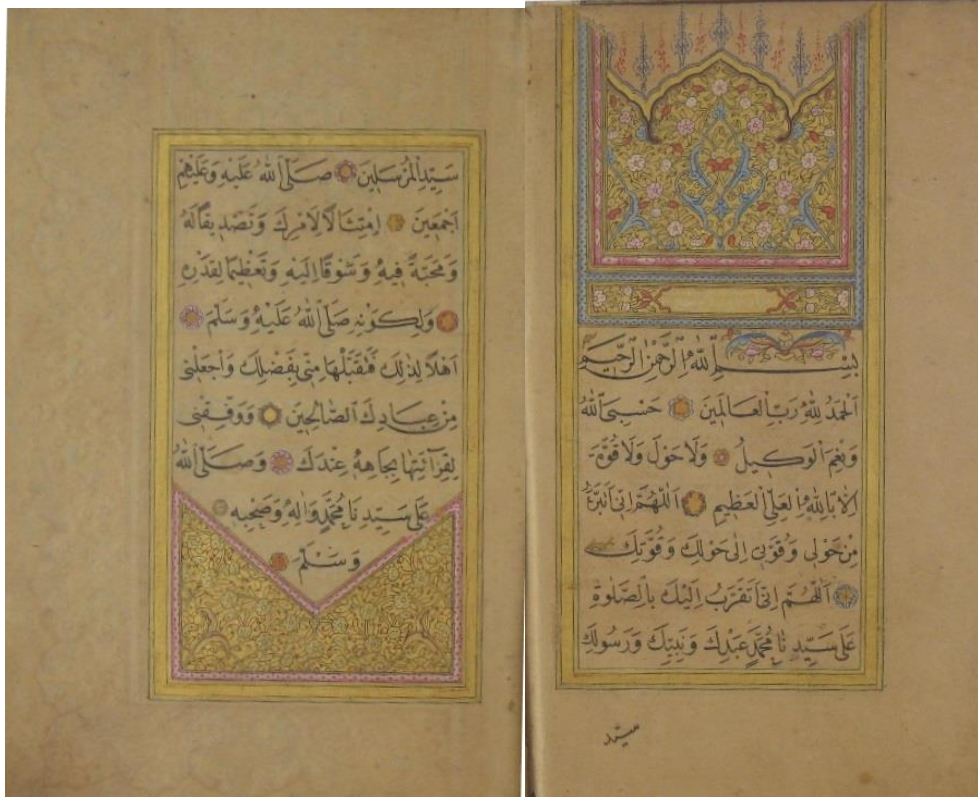 بِسْمِ اللّٰهِ الرَّحْمٰنِ الرَّحِيمِ
اَلْحَمْدُ لِلّٰهِ رَبِّ الْعَالَمِينَ حَسْبِيَ اللّٰهُ
وَنِعْمَ الْوَكِيلُ وَلَا حَوْلَ وَلَا قُوَّةَ
اِلَّا بِاللّٰهِ الْعَلِيِّ الْعَظِيمِ اَللّٰهُمَّ اِنِّي اَبْرَءُ
مِنْ حَوْلِي وَقُوَّتِي اِلٰى حَوْلِكَ وَقُوَّتِكَ
اَللّٰهُمَّ اِنِّي اَتَقَرَّبُ اِلَيْكَ بِالصَّلٰوةِ
عَلٰى سَيِّدِنَا مُحَمَّدٍ عَبْدِكَ وَنَبِيِّكَ وَرَسُولِكَ
سيد
سَيِّدِ الْمُرْسَلِينَ صَلَّى اللّٰهُ عَلَيْهِ وَعَلَيْهِمْ
اَجْمَعِينَ اِمْتِثَالًا لِاَمْرِكَ وَتَصْدِيقًا لَهُ
وَمَحَبَّةً فِيهِ وَشَوْقًا اِلَيْهِ وَتَعْظِيمًا لِقَدْرِهِ
وَلِكَوْنِهِ صَلَّى اللّٰهُ عَلَيْهِ وَسَلَّمَ
اَهْلًا لِذٰلِكَ فَتَقَبَّلْهَا مِنِّي بِفَضْلِكَ وَاجْعَلْنِي
مِنْ عِبَادِكَ الصَّالِحِينَ وَوَفِّقْنِي
لِقِرَائَتِهَا بِجَاهِهِ عِنْدَكَ وَصَلَّى اللّٰهُ
عَلٰى سَيِّدِنَا مُحَمَّدٍ وَاٰلِهِ وَصَحْبِهِ
وَسَلَّمَ